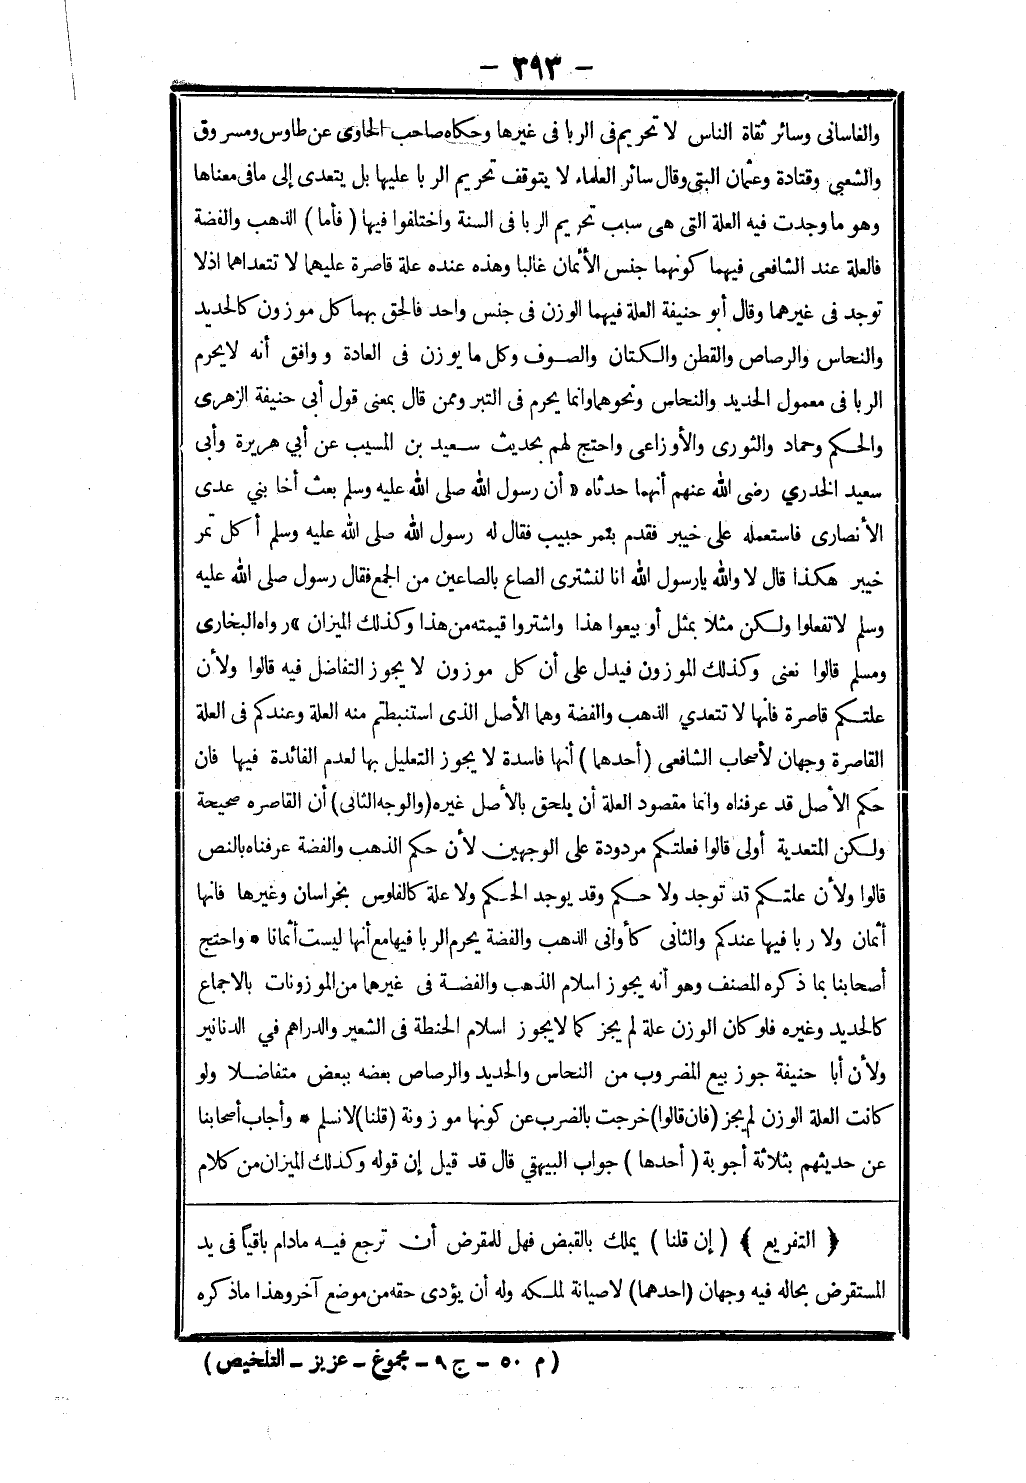 – ٣٩٣ –
والفاسانى وسائر ثقاة الناس لا تحريم فى الربا فى غيرها وحكاه صاحب الحاوى عن طاوس ومسروق
والشعبي وقتادة وعثمان البتى وقال سائر العلماء لا يتوقف تحريم الربا عليها بل يتعدى إلى مافى معناها
وهو ما وجدت فيه العلة التى هى سبب تحريم الربا فى السنة واختلفوا فيها ( فأما ) الذهب والفضة
فالعلة عند الشافعى فيهما كونهما جنس الأثمان غالبا وهذه عنده علة قاصرة عليهما لا تتعداهما اذلا
توجد فى غيرهما وقال أبو حنيفة العلة فيهما الوزن فى جنس واحد فالحق بهما كل موزون كالحديد
والنحاس والرصاص والقطن والكتان والصوف وكل ما يوزن فى العادة ووافق أنه لايحرم
الربا فى معمول الحديد والنحاس ونحوهما وانما يحرم فى التبر وممن قال بمعنى قول أبى حنيفة الزهرى
والحكم وحماد والثورى والأوزاعى واحتج لهم بحديث سعيد بن المسيب عن أبي هريرة وأبى
سعيد الخدري رضى الله عنهم أنهما حدثاه « أن رسول الله صلى الله عليه وسلم بعث أخا بني عدى
الأنصارى فاستعمله على خيبر فقدم بتمر حبيب فقال له رسول الله صلى الله عليه وسلم أكل تمر
خيبر هكذا قال لا والله يارسول الله انا لنشترى الصاع بالصاعين من الجمع فقال رسول صلى الله عليه
وسلم لاتفعلوا ولكن مثلا بمثل أو بيعوا هذا واشتروا قيمته من هذا وكذلك الميزان » رواه البخارى
ومسلم قالوا نعنى وكذلك الموزون فيدل على أن كل موزون لا يجوز التفاضل فيه قالوا ولأن
علتكم قاصرة فانها لا تتعدي الذهب والفضة وهما الأصل الذى استنبطتم منه العلة وعندكم فى العلة
القاصرة وجهان لأصحاب الشافعى ( أحدهما ) أنها فاسدة لا يجوز التعليل بها لعدم الفائدة فيها فان
حكم الاصل قد عرفناه وانما مقصود العلة أن يلحق بالأصل غيره (والوجه الثانى) أن القاصره صحيحة
ولكن المتعدية أولى قالوا فعلتكم مردودة على الوجهين لأن حكم الذهب والفضة عرفناه بالنص
قالوا ولأن علتكم قد توجد ولا حكم وقد يوجد الحكم ولا علة كالفلوس بخراسان وغيرها فانها
أثمان ولا ربا فيها عندكم والثانى كأوانى الذهب والفضة يحرم الربا فيها مع أنها ليست أثمانا * واحتج
أصحابنا بما ذكره المصنف وهو أنه يجوز اسلام الذهب والفضة فى غيرهما من الموزونات بالاجماع
كالحديد وغيره فلو كان الوزن علة لم يجز كما لايجوز اسلام الحنطة فى الشعير والدراهم في الدنانير
ولأن أبا حنيفة جوز بيع المضروب من النحاس والحديد والرصاص بعضه ببعض متفاضلا ولو
كانت العلة الوزن لم يجز (فان قالوا) خرجت بالضرب عن كونها موزونة (قلنا) لانسلم * وأجاب أصحابنا
عن حديثهم بثلاثة أجوبة ( أحدها ) جواب البيهقي قال قد قيل إن قوله وكذلك الميزان من كلام
﴿ التفريع ﴾ ( إن قلنا ) يملك بالقبض فهل للمقرض أن ترجع فيه مادام باقياً فى يد
المستقرض بحاله فيه وجهان (احدهما) لا صيانة لملكه وله أن يؤدى حقه من موضع آخر وهذا ماذكره
( م ٥٠ – ج ٩ – مجموغ – عزيز – التلخيص )